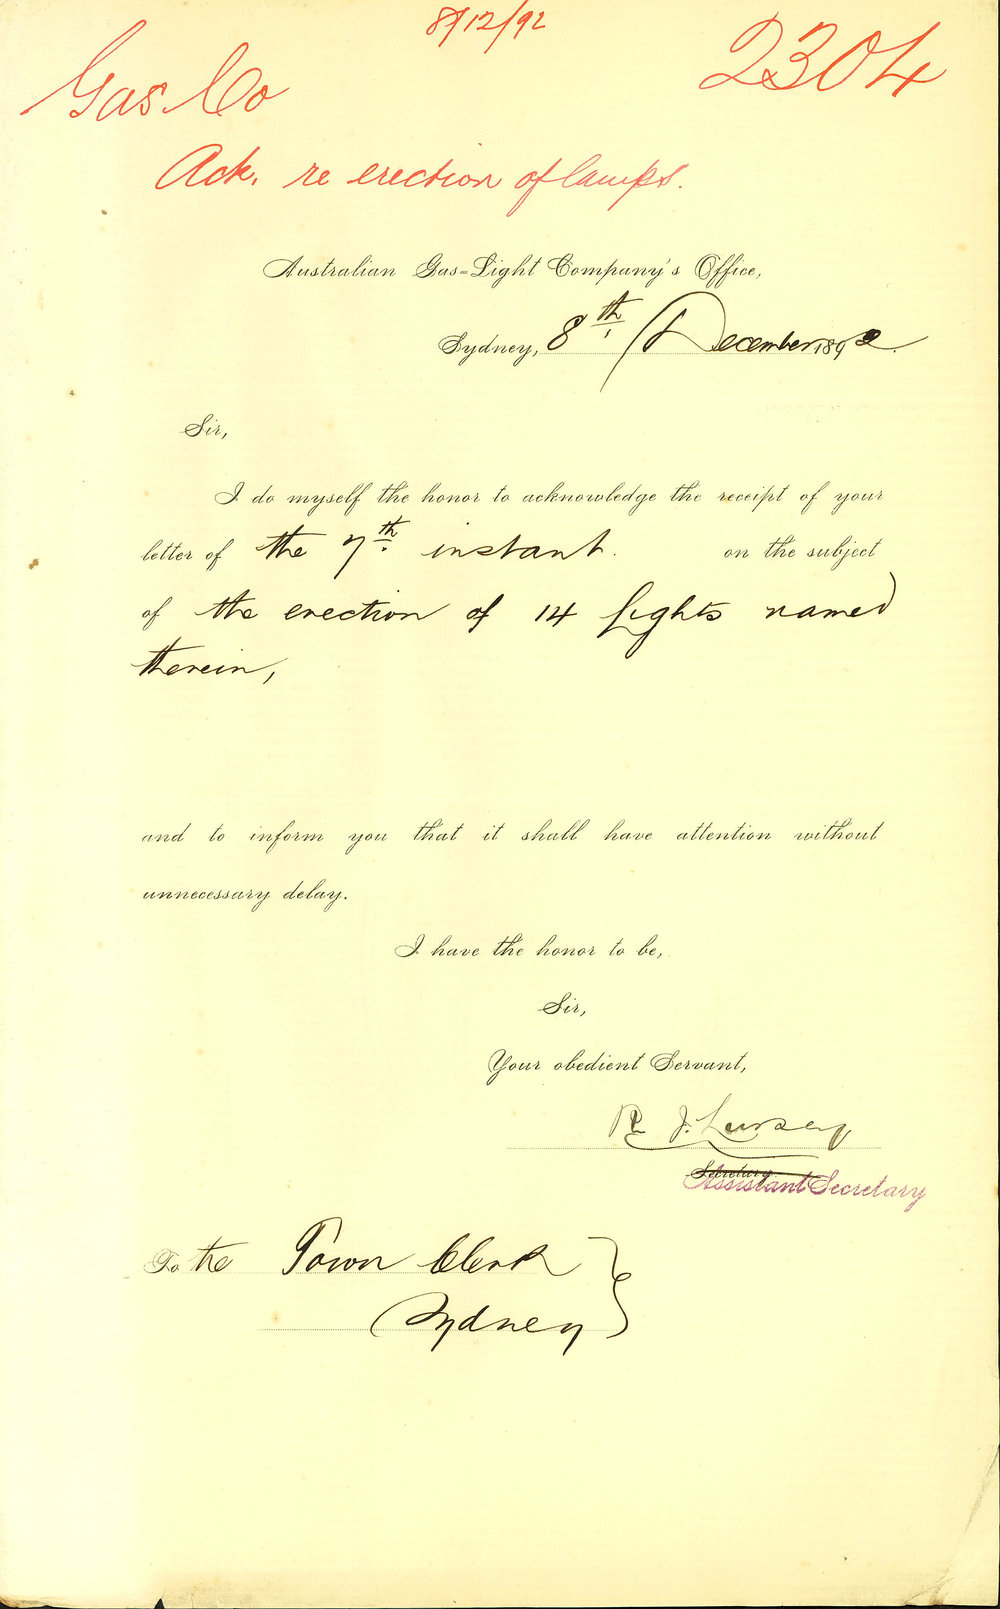 8/12/92
Gas Co
2304
Ack. re erection of lamps.
Australian Gas-Light Company's Office,
Sydney, 8th December 1892.
Sir,
I do myself the honor to acknowledge the receipt of your
letter of the 7th instant. on the subject
of the erection of 14 lights named
therein,
and to inform you that it shall have attention without
unnecessary delay.
I have the honor to be,
Sir,
Your obedient Servant,
R. J.
Secretary
Assistant Secretary
To the Town Clerk
Sydney